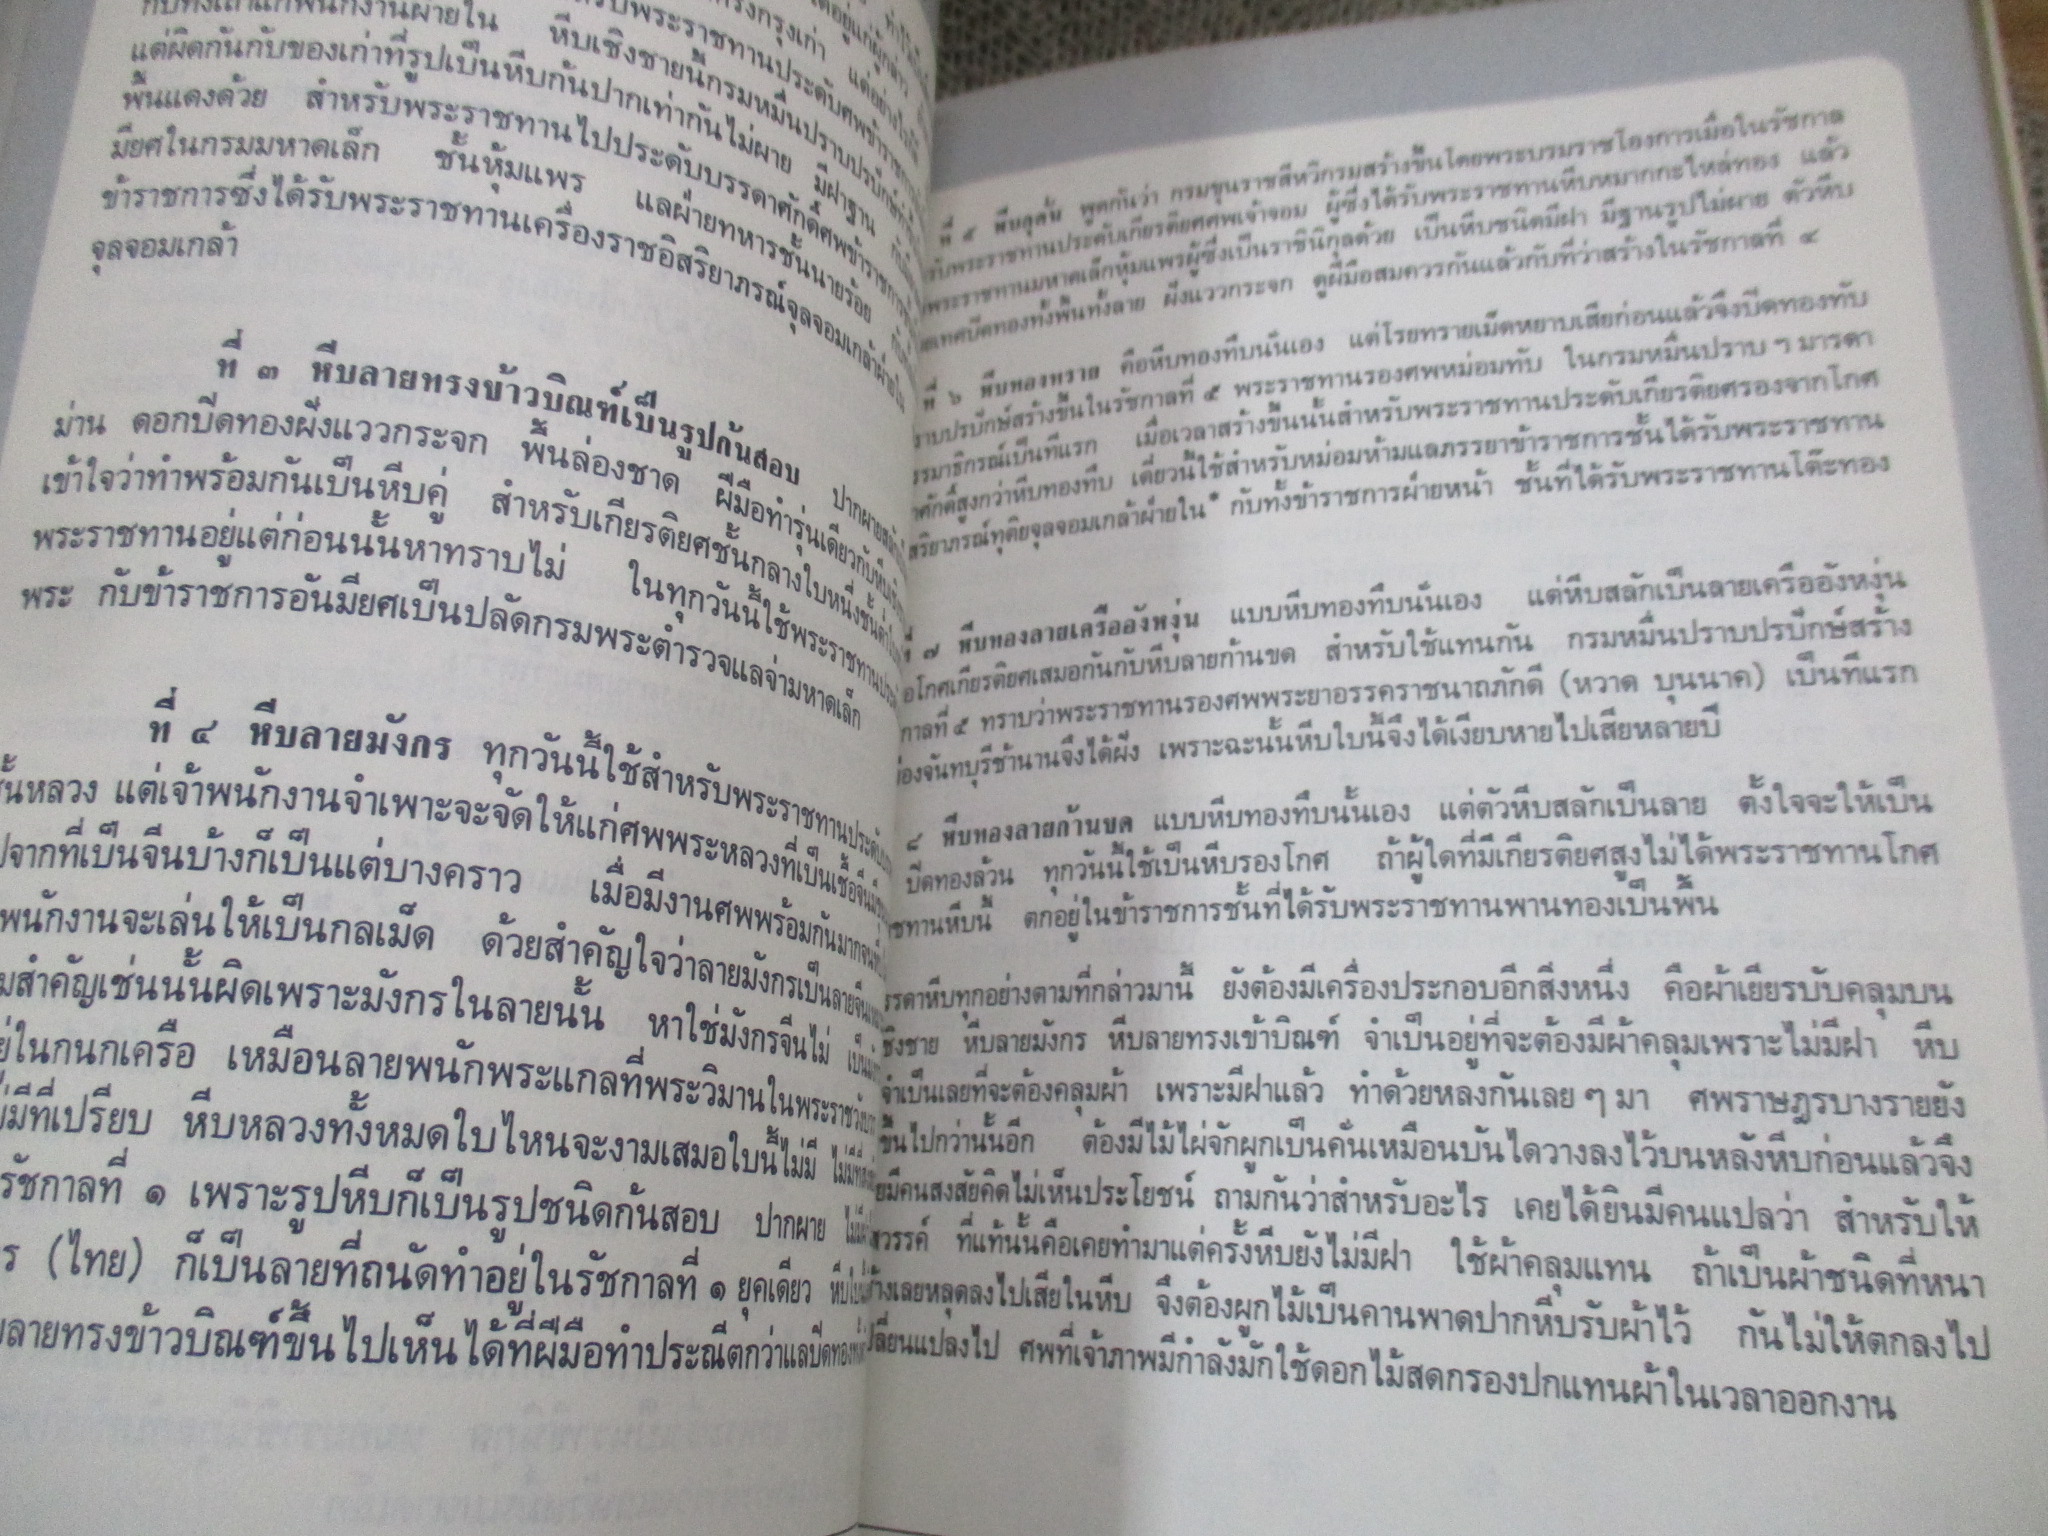 กับทั้งเถ้าแก่พนักงานฝ่ายใน หีบเชิงชายนี้กรมหมื่นปราบปรปักษ์ทำขึ้น
แต่ผิดกันกับของเก่าที่รูปเป็นหีบก้นปากเท่ากันไม่ผาย มีฝาฐาน
พื้นแดงด้วย สำหรับพระราชทานไปประดับบรรดาศักดิ์ศพข้าราชการ
มียศในกรมมหาดเล็ก ชั้นหุ้มแพร แลฝ่ายทหารชั้นนายร้อย
ข้าราชการซึ่งได้รับพระราชทานเครื่องราชอิสริยาภรณ์จุลจอมเกล้าฝ่ายใน
จุลจอมเกล้า
ที่ ๓ หีบลายทรงข้าวบิณฑ์เป็นรูปก้นสอบ ปากผาย
ม่าน ดอกปิดทองฝังแววกระจก พื้นล่องชาด ฝีมือทำรุ่นเดียวกับหีบ
เข้าใจว่าทำพร้อมกันเป็นหีบคู่ สำหรับเกียรติยศชั้นกลางใบหนึ่งชั้นต่ำ
พระราชทานอยู่แต่ก่อนนั้นหาทราบไม่ ในทุกวันนี้ใช้พระราชทาน
พระ กับข้าราชการอันมียศเป็นปลัดกรมพระตำรวจแลจ่ามหาดเล็ก
ที่ ๔ หีบลายมังกร ทุกวันนี้ใช้สำหรับพระราชทานประดับ
ชั้นหลวง แต่เจ้าพนักงานจำเพาะจะจัดให้แก่ศพพระหลวงที่เป็นเชื้อจีน
ปจากที่เป็นจีนบ้างก็เป็นแต่บางคราว เมื่อมีงานศพพร้อมกันมาก
พนักงานจะเล่นให้เป็นกลเม็ด ด้วยสำคัญใจว่าลายมังกรเป็นลายจีน
มสำคัญเช่นนั้นผิดเพราะมังกรในลายนั้น หาใช่มังกรจีนไม่
ยู่ในกนกเครือ เหมือนลายพนักพระแกลที่พระวิมานในพระราชวัง
ม่มีที่เปรียบ หีบหลวงทั้งหมดใบไหนจะงามเสมอใบนี้ไม่มี
รัชกาลที่ ๑ เพราะรูปหีบก็เป็นรูปชนิดก้นสอบ ปากผาย
ร (ไทย) ก็เป็นลายที่ถนัดทำอยู่ในรัชกาลที่ ๑ ยุคเดียว
บลายทรงข้าวบิณฑ์ขึ้นไปเห็นได้ที่ฝีมือทำประณีตกว่าแลปิดทอง
ที่ ๕ หีบกุดั่น พูดกันว่า กรมขุนราชสีหวิกรมสร้างขึ้นโดยพระบรมราชโองการเมื่อในรัชกาล
รับพระราชทานประดับเกียรติยศศพเจ้าจอม ผู้ซึ่งได้รับพระราชทานหีบหมากกะไหล่ทอง แล้ว
พระราชทานมหาดเล็กหุ้มแพรผู้ซึ่งเป็นราชินิกุลด้วย เป็นหีบชนิดมีฝา มีฐานรูปไม่ผาย ตัวหีบ
ปิดทองทั้งพื้นทั้งลาย ฝังแววกระจก ดูฝีมือสมควรกันแล้วกับที่ว่าสร้างในรัชกาลที่ ๔
ที่ ๖ หีบทองทราย คือหีบทองทึบนั่นเอง แต่โรยทรายเม็ดหยาบเสียก่อนแล้วจึงปิดทองทับ
ราบปรปักษ์สร้างขึ้นในรัชกาลที่ ๕ พระราชทานรองศพหม่อมทับ ในกรมหมื่นปราบ ๆ มารดา
รรมาธิกรณ์เป็นทีแรก เมื่อเวลาสร้างขึ้นนั้นสำหรับพระราชทานประดับเกียรติยศรองจากโกศ
าศักดิ์สูงกว่าหีบทองทึบ เดี๋ยวนี้ใช้สำหรับหม่อมห้ามแลภรรยาข้าราชการชั้นได้รับพระราชทาน
สริยาภรณ์ทุติยจุลจอมเกล้าฝ่ายใน* กับทั้งข้าราชการฝ่ายหน้า ชั้นที่ได้รับพระราชทานโต๊ะทอง
ที่ ๗ หีบทองลายเครือองุ่น แบบหีบทองทึบนั่นเอง แต่หีบสลักเป็นลายเครือองุ่น
อโกศเกียรติยศเสมอกันกับหีบลายก้านขด สำหรับใช้แทนกัน กรมหมื่นปราบปรปักษ์สร้าง
กาลที่ ๕ ทราบว่าพระราชทานรองศพพระยาอรรคราชนาถภักดี (หวาด บุนนาค) เป็นทีแรก
องจันทบุรีช้านานจึงได้ฝัง เพราะฉะนั้นหีบใบนี้จึงได้เงียบหายไปเสียหลายปี
๘ หีบทองลายก้านขด แบบหีบทองทึบนั้นเอง แต่ตัวหีบสลักเป็นลาย ตั้งใจจะให้เป็น
ปิดทองล้วน ทุกวันนี้ใช้เป็นหีบรองโกศ ถ้าผู้ใดที่มีเกียรติยศสูงไม่ได้พระราชทานโกศ
าชทานหีบนี้ ตกอยู่ในข้าราชการชั้นที่ได้รับพระราชทานพานทองเป็นพื้น
รรดาหีบทุกอย่างตามที่กล่าวมานี้ ยังต้องมีเครื่องประกอบอีกสิ่งหนึ่ง คือผ้าเยียรบับคลุมบน
ชิงชาย หีบลายมังกร หีบลายทรงเข้าบิณฑ์ จำเป็นอยู่ที่จะต้องมีผ้าคลุมเพราะไม่มีฝา หีบ
จำเป็นเลยที่จะต้องคลุมผ้า เพราะมีฝาแล้ว ทำด้วยหลงกันเลย ๆ มา ศพราษฎรบางรายยัง
ขึ้นไปกว่านั้นอีก ต้องมีไม้ไผ่จักผูกเป็นคั่นเหมือนบันไดวางลงไว้บนหลังหีบก่อนแล้วจึง
ยมีคนสงสัยคิดไม่เห็นประโยชน์ ถามกันว่าสำหรับอะไร เคยได้ยินมีคนแปลว่า สำหรับให้
สวรรค์ ที่แท้นั้นคือเคยทำมาแต่ครั้งหีบยังไม่มีฝา ใช้ผ้าคลุมแทน ถ้าเป็นผ้าชนิดที่หนา
้างเลยหลุดลงไปเสียในหีบ จึงต้องผูกไม้เป็นคานพาดปากหีบรับผ้าไว้ กันไม่ให้ตกลงไป
ปลี่ยนแปลงไป ศพที่เจ้าภาพมีกำลังมักใช้ดอกไม้สดกรองปกแทนผ้าในเวลาออกงาน